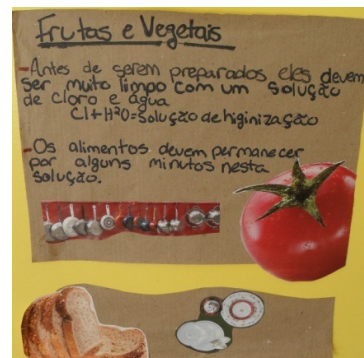 Frutas e Vegetais
-Antes de serem preparados eles devem
ser muito limpo com um solução
de cloro e água
Cl+H²O=Solução de higinização
-Os alimentos devem permanecer
por alguns minutos nesta
solução.